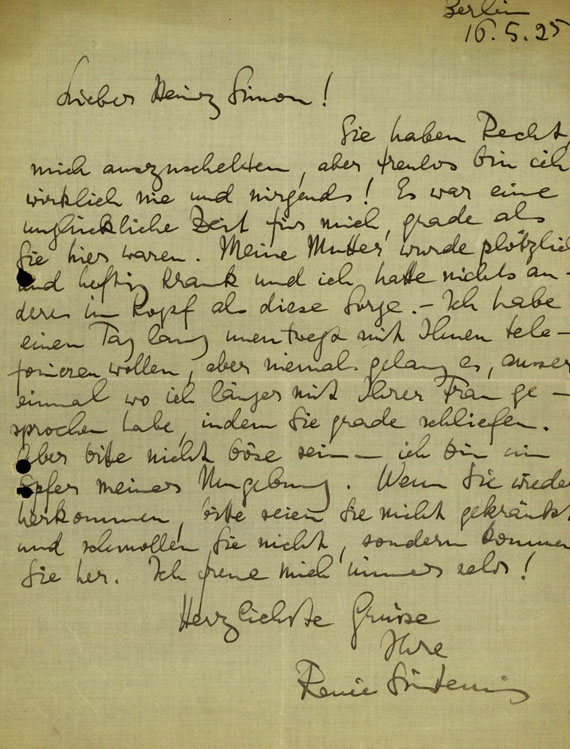 Berlin
16.5.25
Lieber Heinz Simon!
Sie haben Recht,
mich auszuschelten, aber treulos bin ich
wirklich nie und nirgends! Es war eine
unglückliche Zeit für mich, grade als
Sie hier waren. Meine Mutter wurde plötzlich
und heftig krank und ich hatte nichts an-
deres im Kopf als diese Sorge. – Ich habe
einen Tag lang unentwegt mit Ihnen tele-
fonieren wollen, aber niemals gelang es, ausser
einmal wo ich länger mit Ihrer Frau ge-
sprochen habe, indem Sie grade schliefen.
Aber bitte nicht böse sein – ich bin ein
Opfer meiner Umgebung. Wenn Sie wieder
herkommen, bitte seien Sie nicht gekränkt
und schmollen Sie nicht, sondern kommen
Sie her. Ich freue mich immer sehr!
Herzlichste Grüsse
Ihre
Renée Sintenis